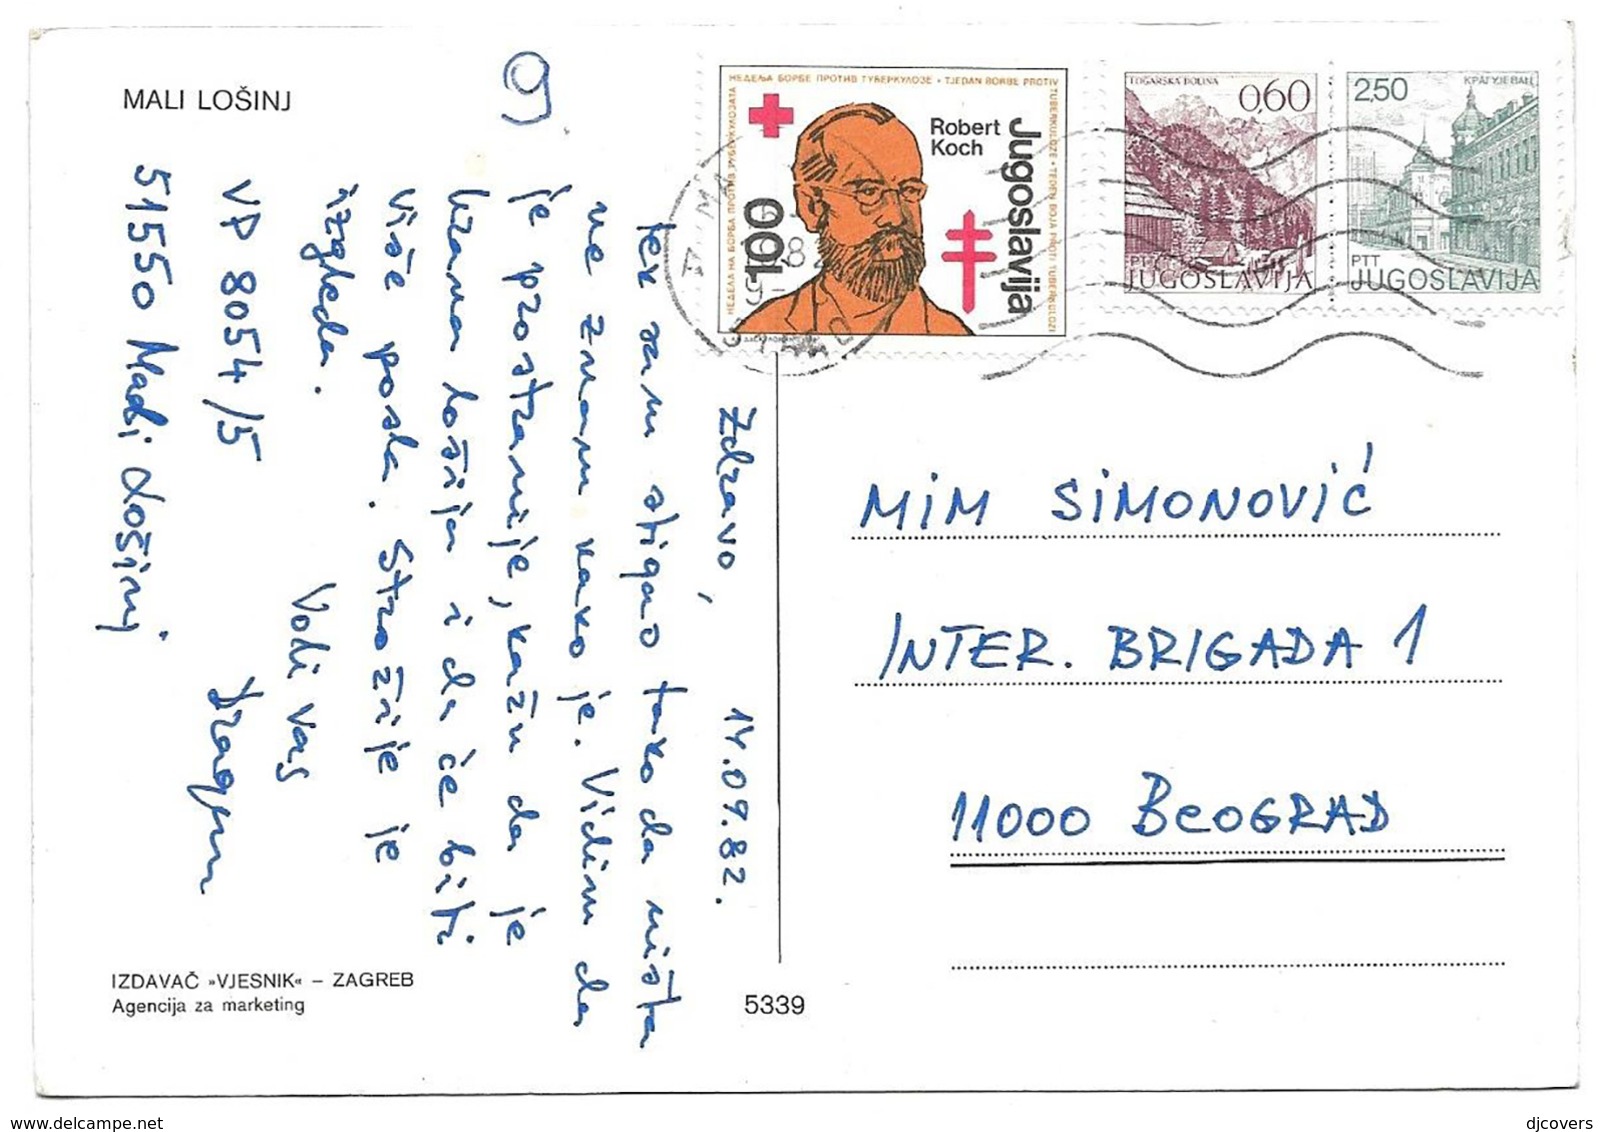 MALI LOŠINJ
9)
Zdravo, 14.09.82.
tek sam stigao tako da ništa
ne znam kako je. Vidim da
je prostranije, kažu da je
hrana lošija i da će biti
više posla. Strožije je
izgleda.
Voli vas
Dragan
VP 8054/5
51550 Mali Lošinj
IZDAVAČ »VJESNIK« – ZAGREB
Agencija za marketing
5339
НЕДЕЉА БОРБЕ ПРОТИВ ТУБЕРКУЛОЗЕ • TJEDAN BORBE PROTIV
TUBERKULOZE • TEDEN BOJA PROTI TUBERKULOZI
НЕДЕЛА НА БОРБА ПРОТИВ ТУБЕРКУЛОЗАТА
Robert
Koch
Jugoslavija
100
LOGARSKA DOLINA
0,60
PTT
JUGOSLAVIJA
2,50
КРАГУЈЕВАЦ
PTT
JUGOSLAVIJA
MIM SIMONOVIĆ
INTER. BRIGADA 1
11000 BEOGRAD
www.delcampe.net
djcovers